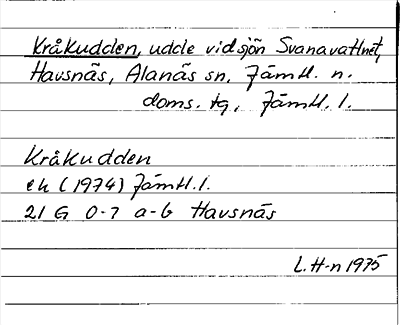 Kråkudden, udde vid sjön Svanavattnet,
Havsnäs, Alanäs sn, Jämtl. n.
doms. tg, Jämtl. l.
Kråkudden
ek (1974) Jämtl. l.
21 G 0-7 a-b Havsnäs
L. H-n 1975